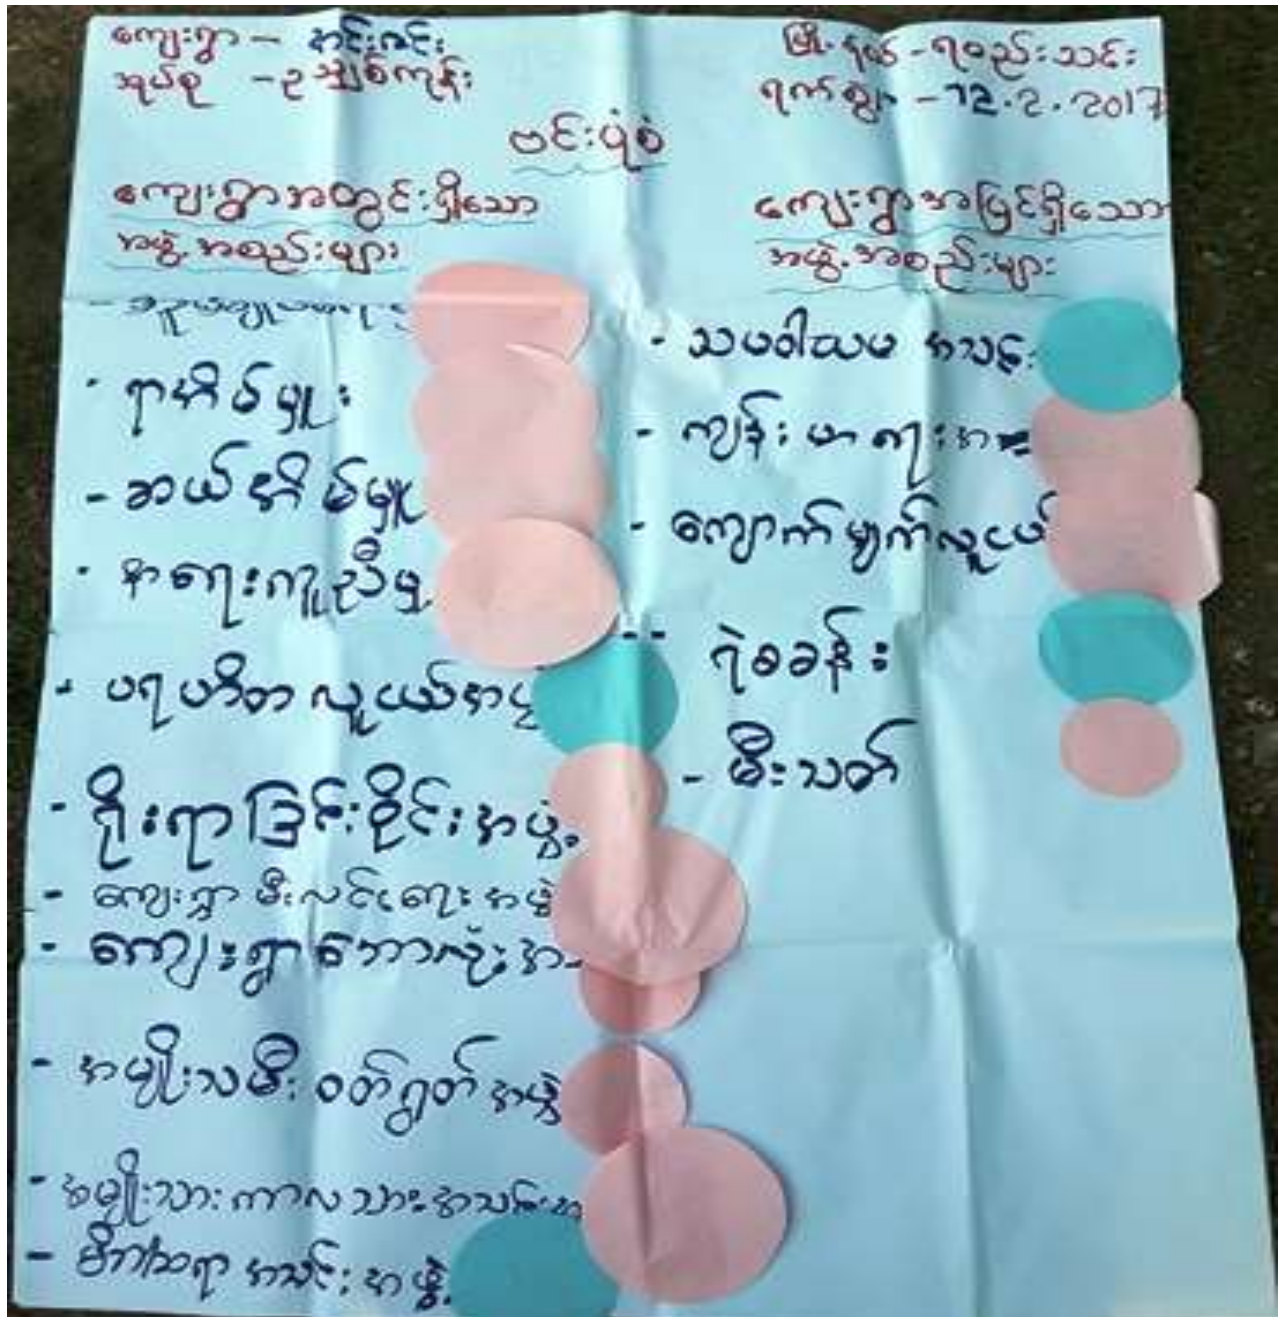 ကျေးရွာ - အင်းလင်း
အုပ်စု - ဥသျှစ်ကုန်း
မြို့နယ် - ရေစည်းသင်း
ရက်စွဲ - 12.2.2017
ဗင်းပုံစံ
ကျေးရွာအတွင်းရှိသော
အဖွဲ့အစည်းများ
- ရာအိမ်မှူး
- ဆယ်အိမ်မှူး
- နာရေးကူညီမှု
- ပရဟိတ လူငယ်အဖွဲ့
- ရိုးရာခြင်းဝိုင်းအဖွဲ့
- ကျေးရွာမီးလင်းရေးအဖွဲ့
- ကျေးရွာဘောလုံးအ
- အမျိုးသမီးဝတ်ရွတ်အဖွဲ့
- အမျိုးသားကာလသားအသင်းအ
- မိဘဆရာအသင်းအဖွဲ့
ကျေးရွာအပြင်ရှိသော
အဖွဲ့အစည်းများ
- သမဝါယမအသင်း
- ကျန်းမာရေးအ
- ကျောက်မျက်လူငယ်
-- ရဲစခန်း
- မီးသတ်